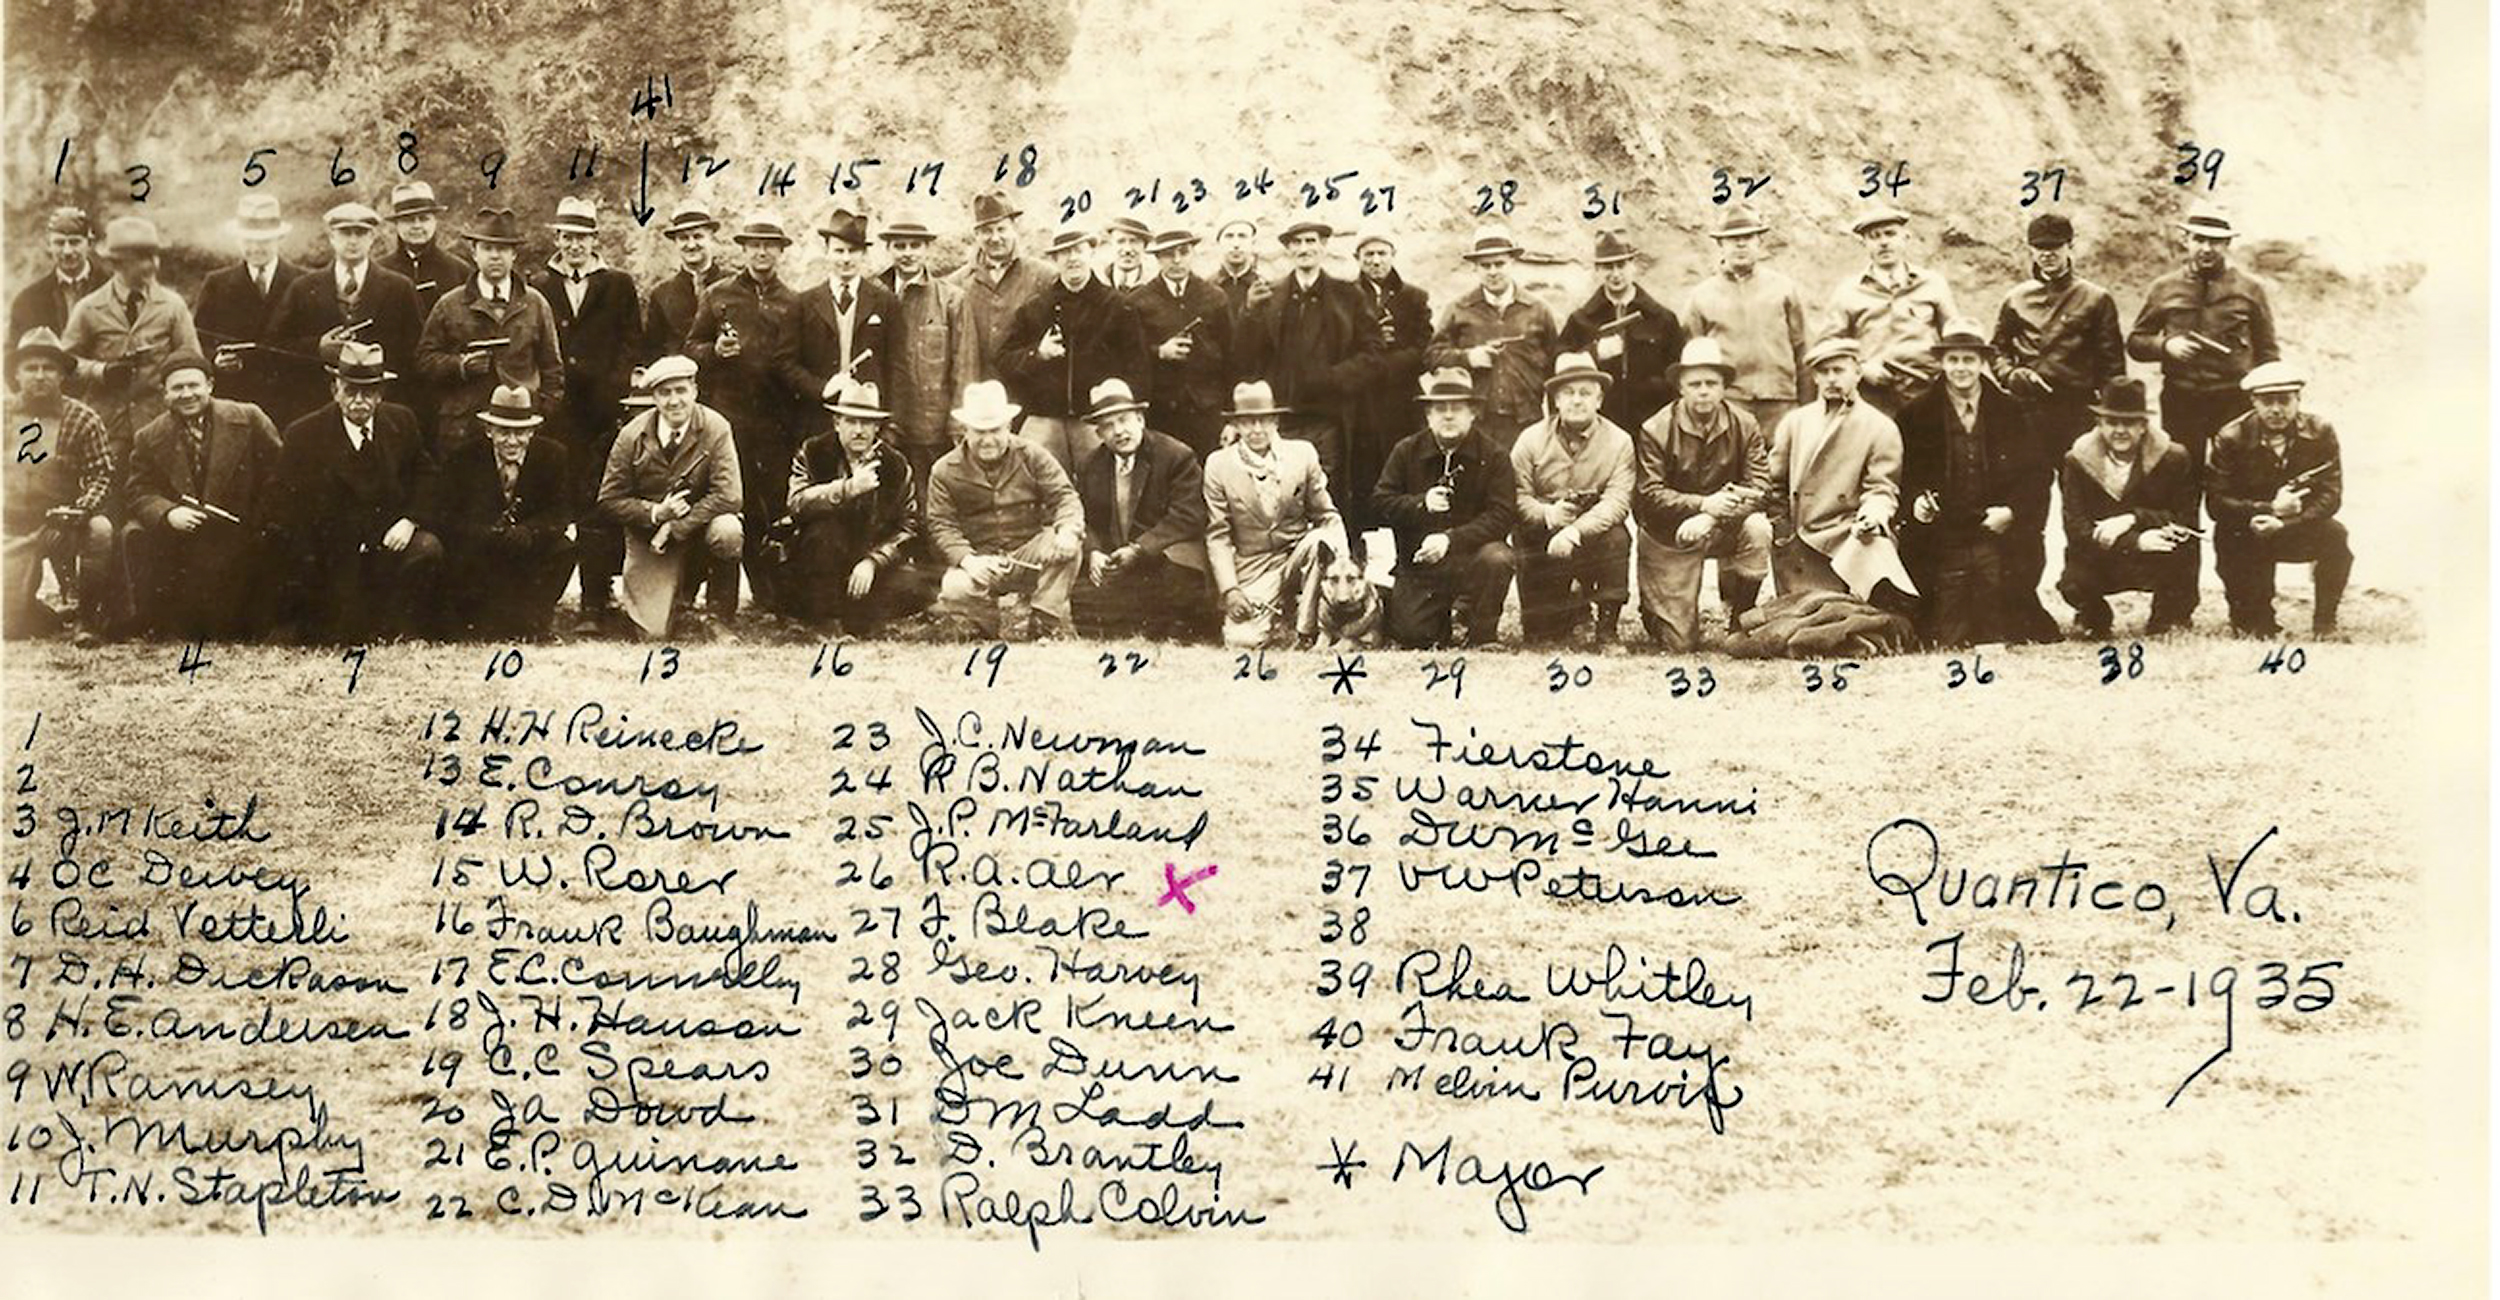 41
1 3 5 6 8 9 11 12 14 15 17 18 20 21 23 24 25 27 28 31 32 34 37 39
2
4 7 10 13 16 19 22 26 * 29 30 33 35 36 38 40
1
2
3 J.M Keith
4 OC Dewey
6 Reid Vetterli
7 D.H. Dickason
8 H.E. Andersen
9 W, Ramsey
10 J. Murphy
11 T.N. Stapleton
12 H.H Reinecke
13 E. Conroy
14 R. D. Brown
15 W. Rorer
16 Frank Baughman
17 E.C. Connelley
18 J. H. Hanson
19 C.C Spears
20 JA Dowd
21 E.P. Guinane
22 C.D. McKean
23 J.C. Newman
24 R B. Nathan
25 J.P. McFarland
26 R.A. Alt X
27 F. Blake
28 Geo. Harvey
29 Jack Kneen
30 Joe Dunn
31 DM Ladd
32 D. Brantley
33 Ralph Colvin
34 Fierstone
35 Warner Hanni
36 DWMcGee
37 VWPeterson
38
39 Rhea Whitley
40 Frank Fay
41 Melvin Purvis
* Major
Quantico, Va.
Feb. 22-1935